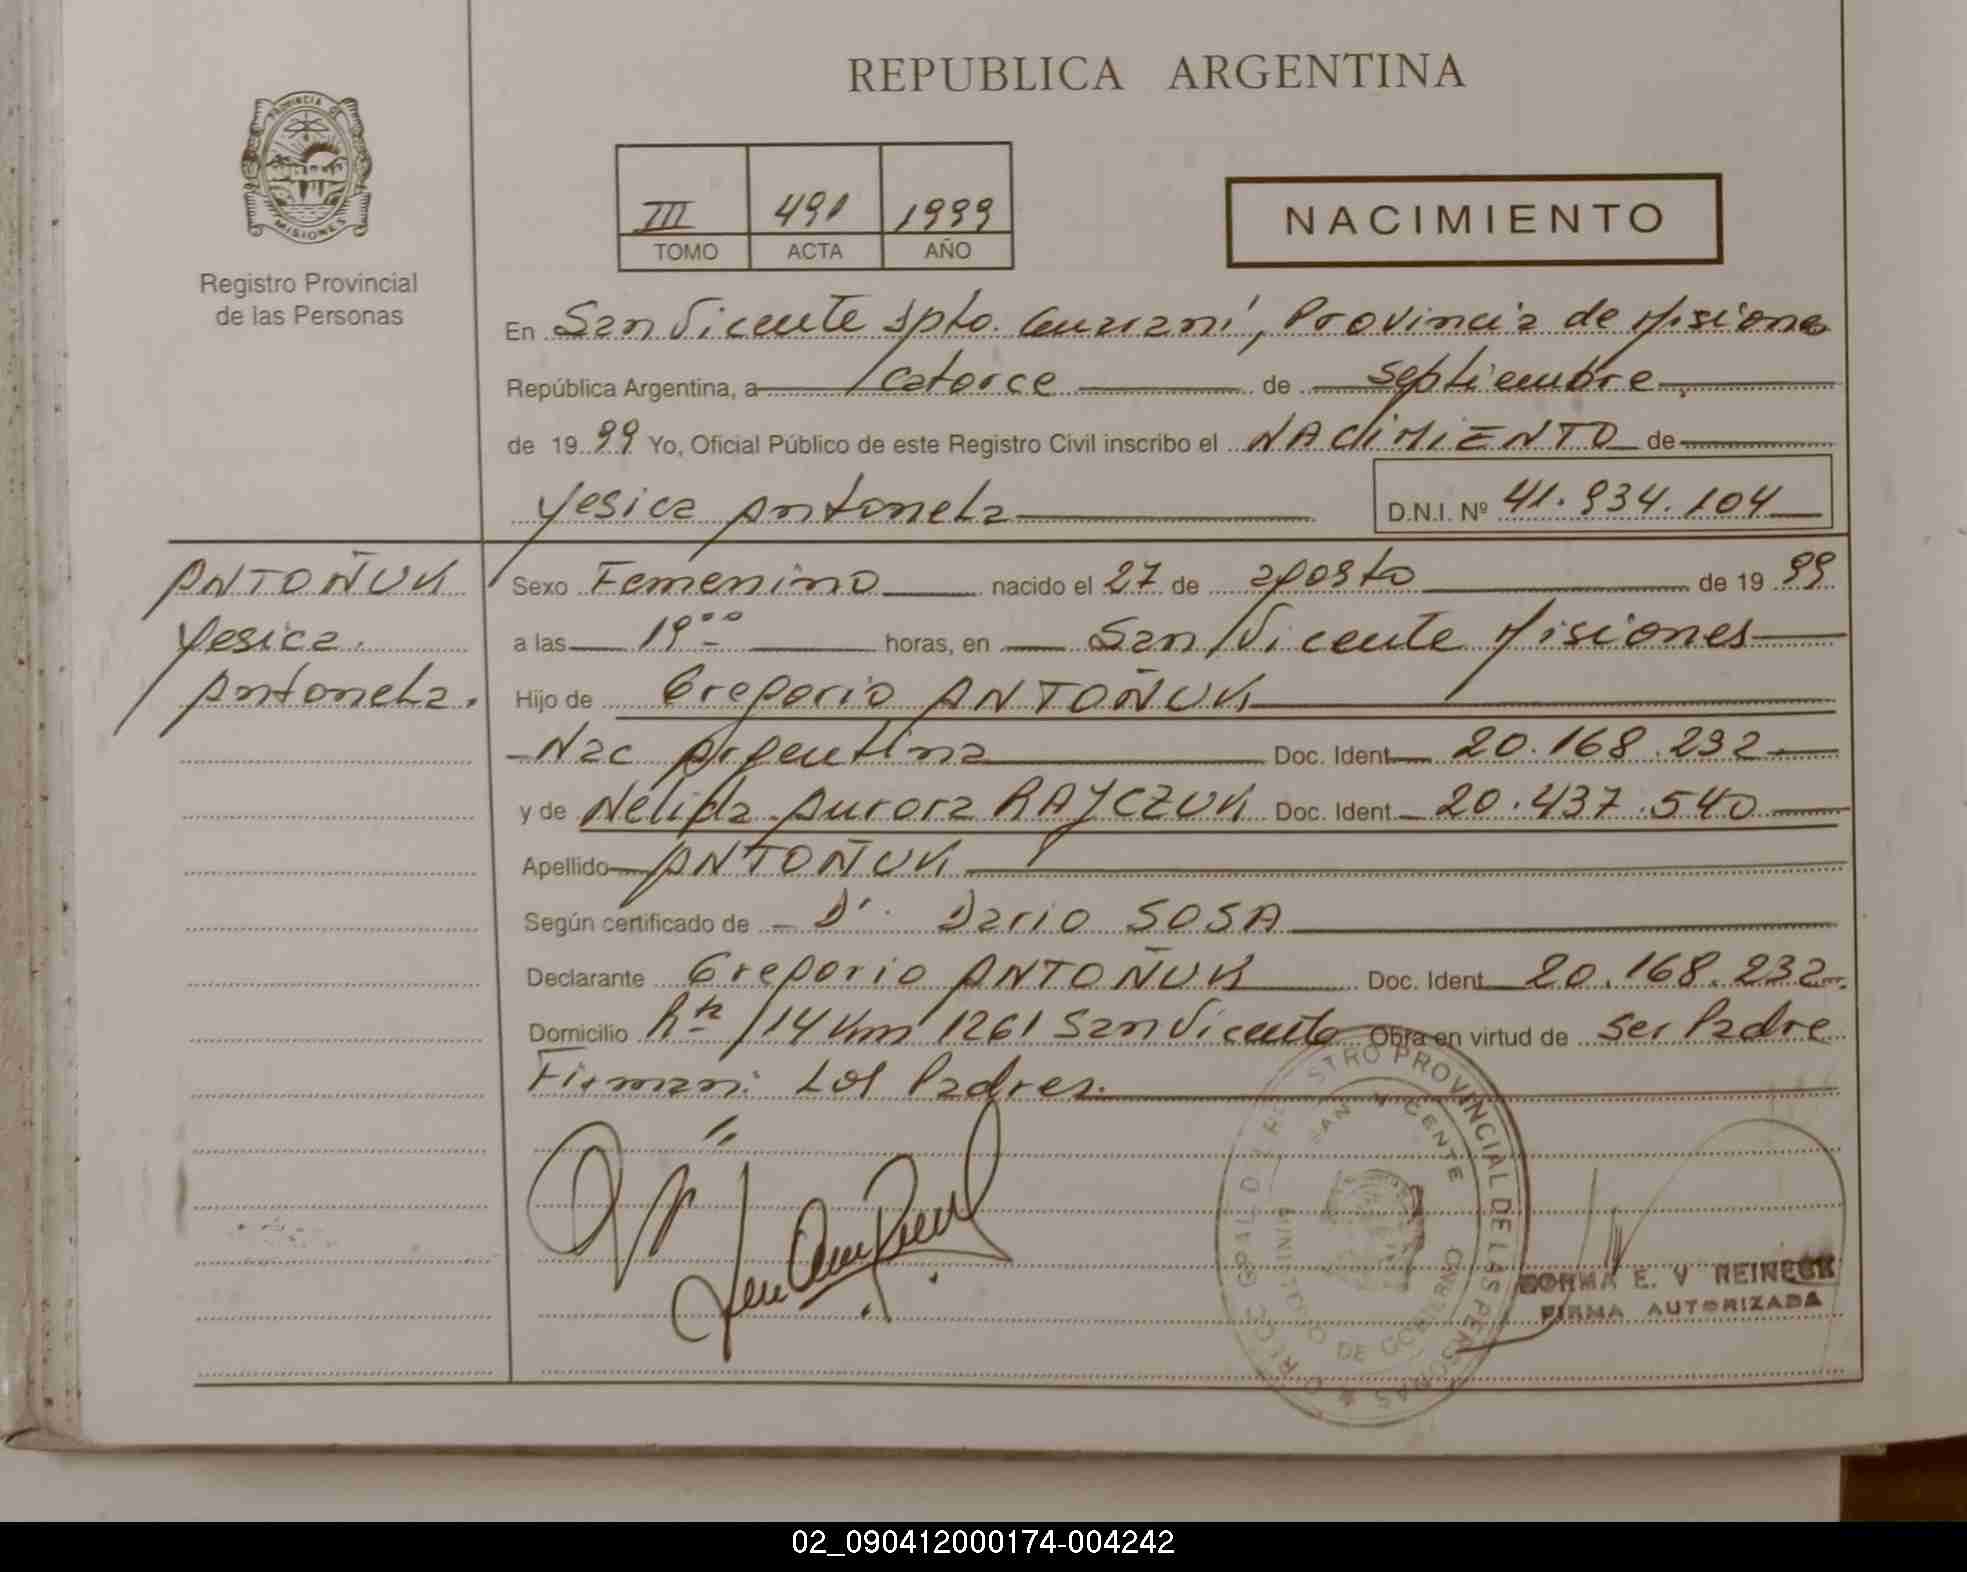 REPUBLICA ARGENTINA
PROVINCIA DE
MISIONES
Registro Provincial
de las Personas
III 491 1999
TOMO ACTA AÑO
NACIMIENTO
En San Vicente Dpto. Guaraní, Provincia de Misiones
República Argentina, a catorce de septiembre
de 1999 Yo, Oficial Público de este Registro Civil inscribo el NACIMIENTO de
Yesica Antonela D.N.I. Nº 41.934.104
ANTOÑUK
Yesica
Antonela.
Sexo Femenino nacido el 27 de agosto de 1999
a las 19°° horas, en San Vicente Misiones
Hijo de Gregorio ANTOÑUK
Nac Argentina Doc. Ident. 20.168.232
y de Nelida Aurora RAYCZUK Doc. Ident. 20.437.540
Apellido ANTOÑUK
Según certificado de Dr. Dario SOSA
Declarante Gregorio ANTOÑUK Doc. Ident. 20.168.232
Domicilio Rta 14 Km 1261 San Vicente Obra en virtud de ser Padre
Firman: Los Padres.
DIRECC. GRAL. DEL REGISTRO PROVINCIAL DE LAS PERSONAS
SAN VICENTE
MINISTERIO DE GOBIERNO
NORMA E. V REINECK
FIRMA AUTORIZADA
02_090412000174-004242